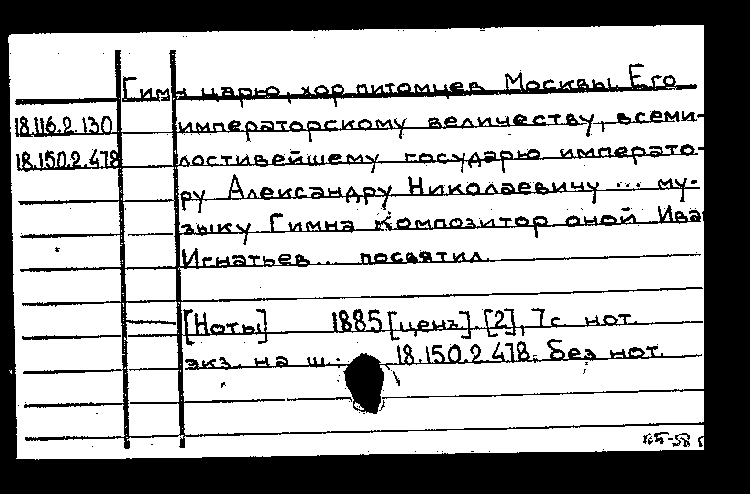 Гимн царю, хор питомцев Москвы Его
18.116.2.130 императорскому величеству, всеми-
18.150.2.478 лостивейшему государю императо-
ру Александру Николаевичу ... му-
зыку Гимна композитор оной Ива
Игнатьев ... посвятил.
[Ноты] 1885 [ценз]. [2], 7с. нот.
экз. на ш. 18.150.2.478. Без нот.